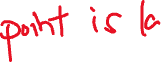 point is la